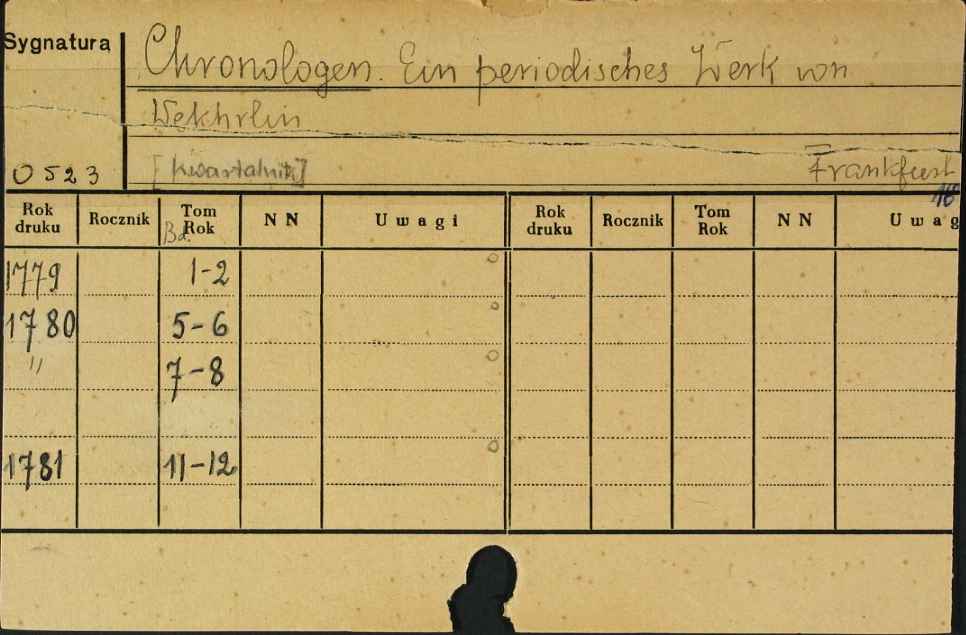 Sygnatura
Chronologen. Ein periodisches Werk von
Wekhrlin
0523 [Kwartalnik] Frankfurt
18
Rok druku Rocznik Tom Rok NN Uwagi Rok druku Rocznik Tom Rok NN Uwag
Bd.
1779 1-2
1780 5-6
" 7-8
1781 11-12